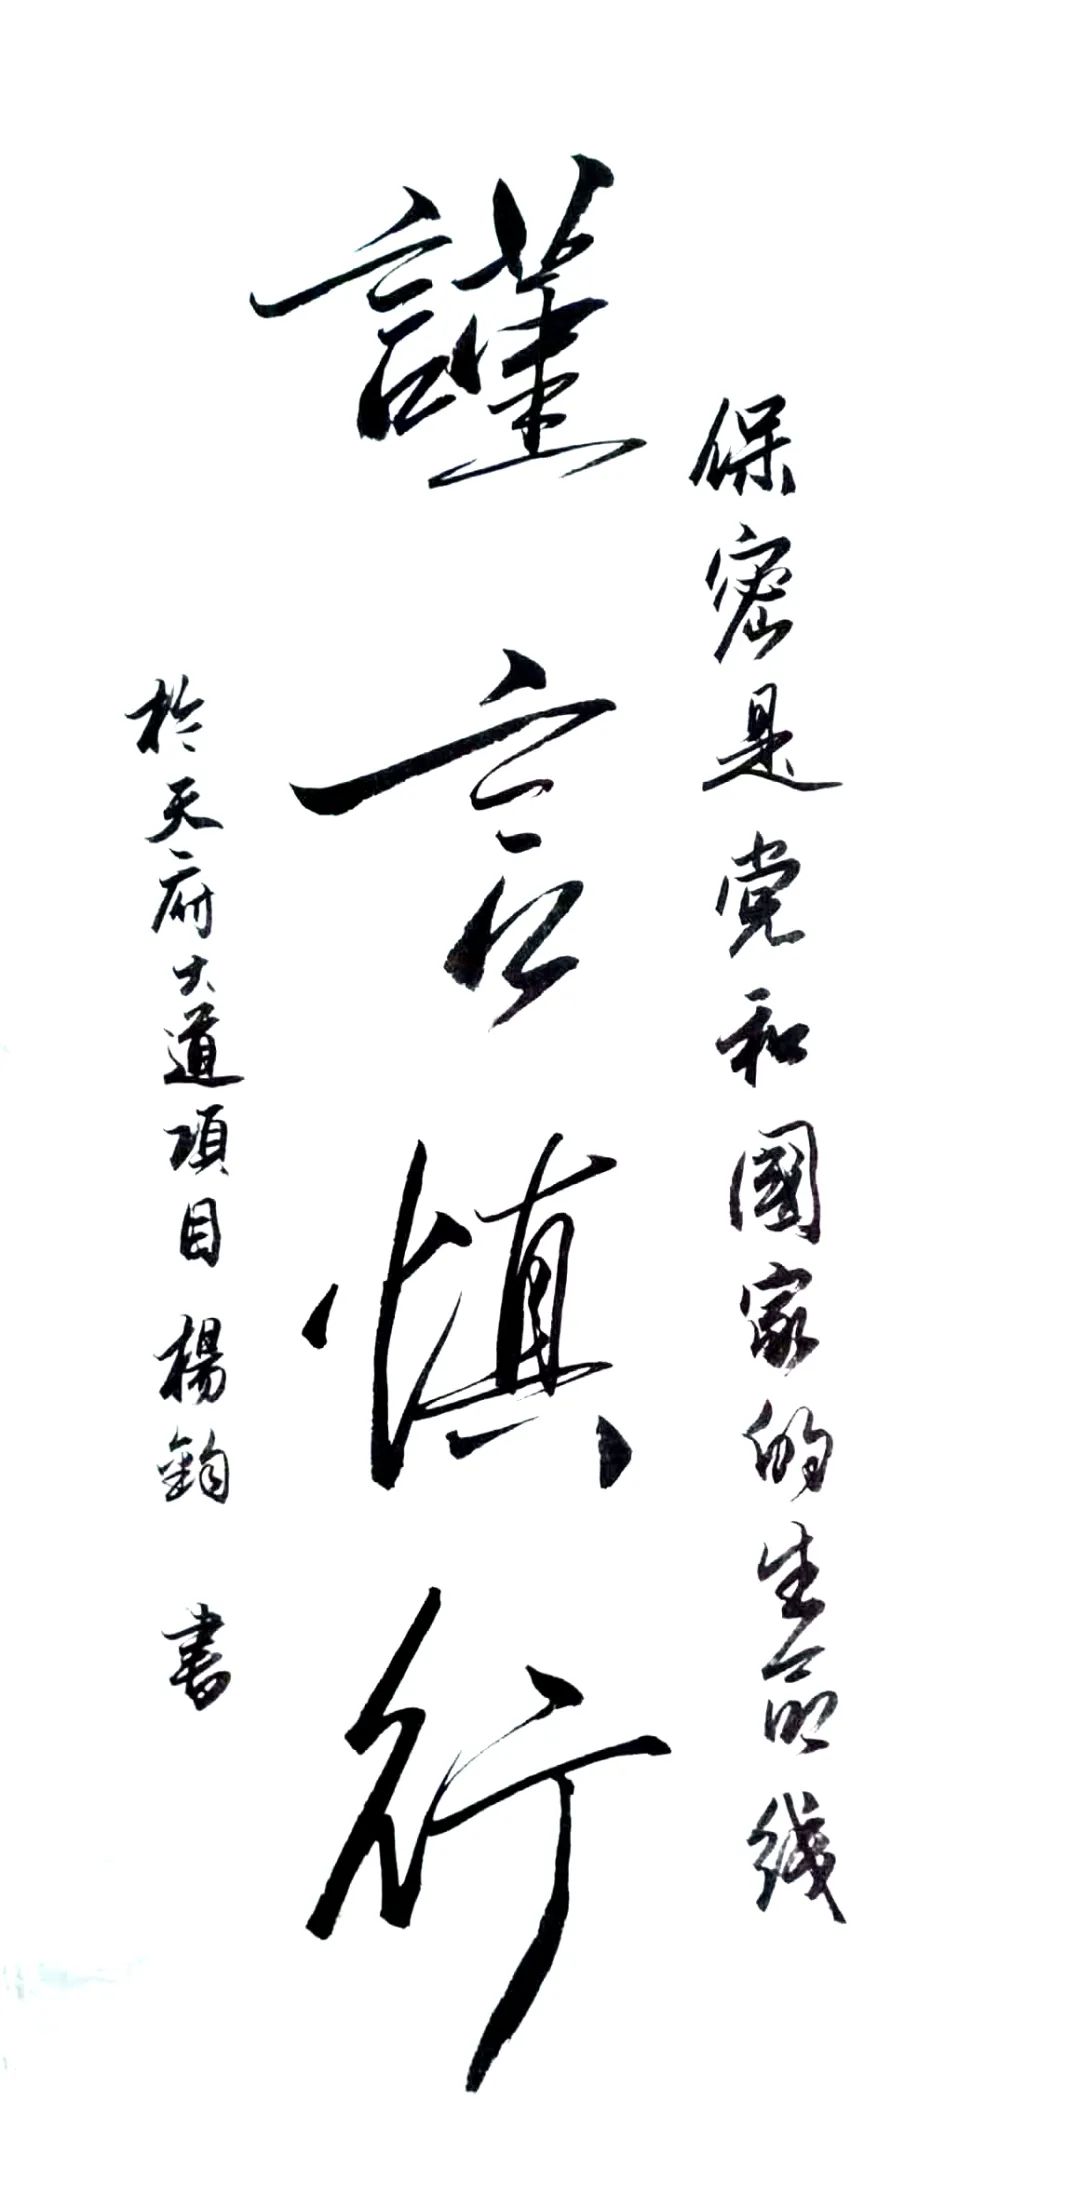 保密是党和國家的生命线
謹言慎行
於天府大道項目 楊鈞 書